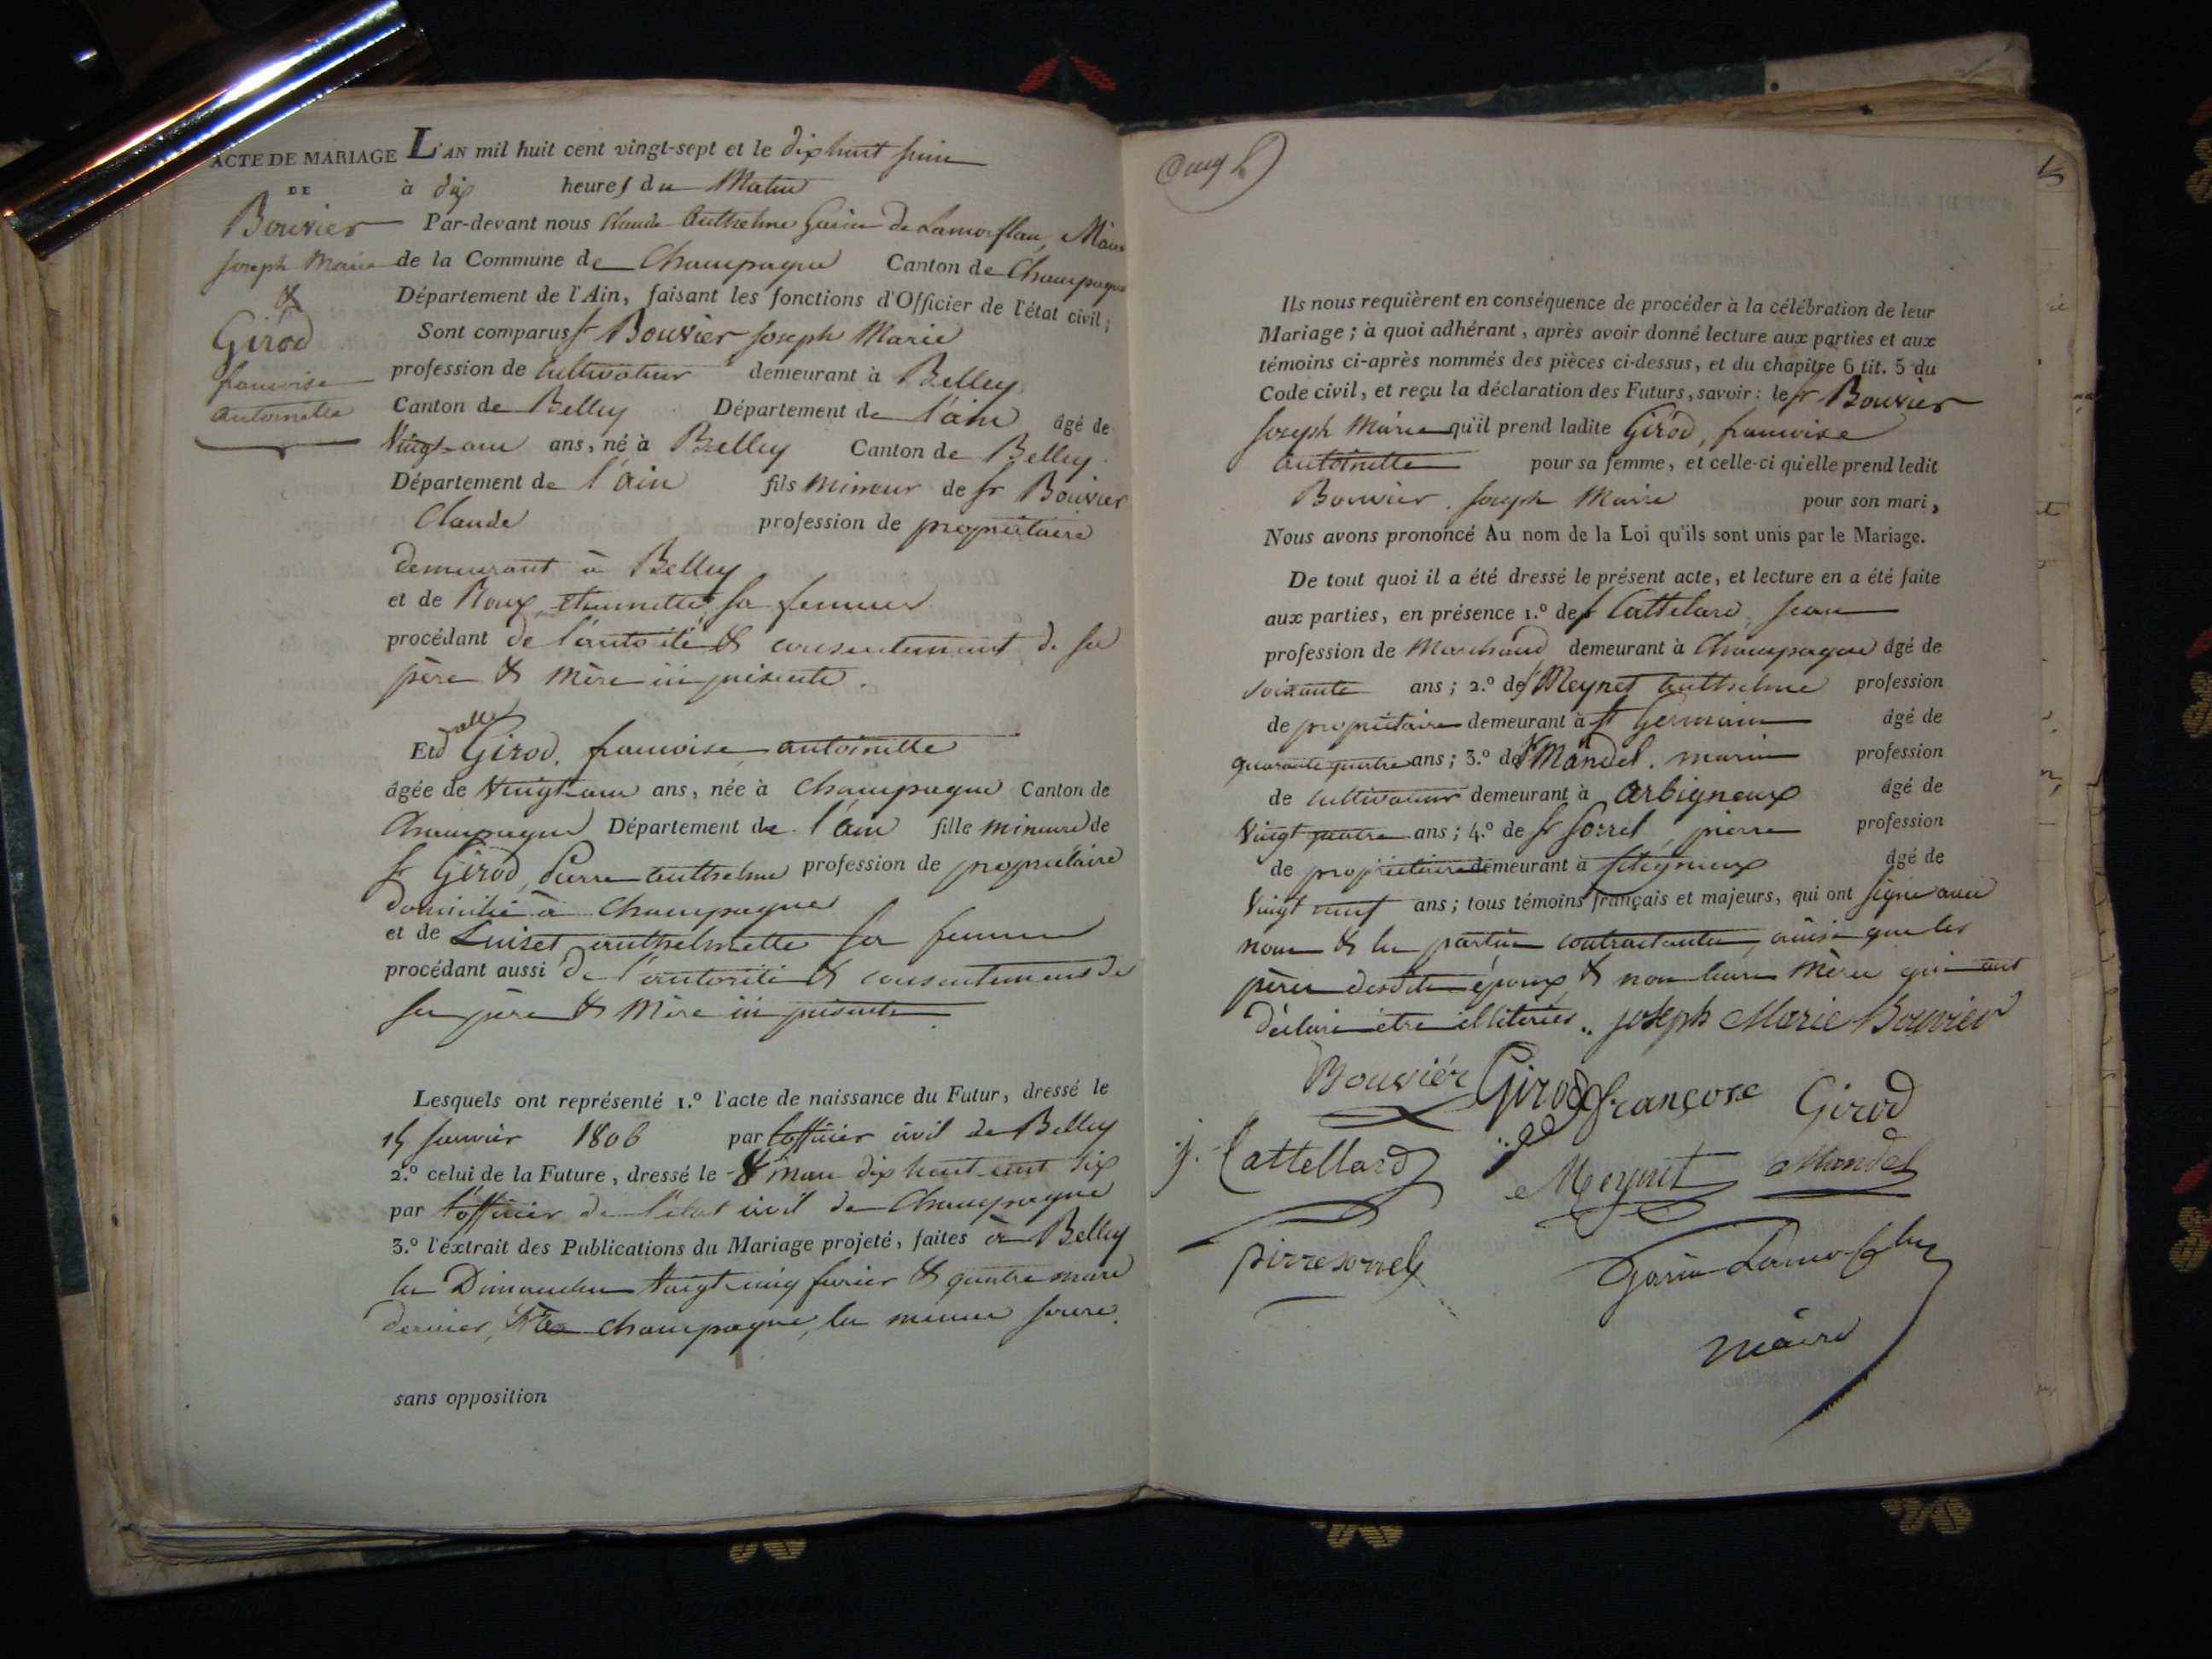 ACTE DE MARIAGE
DE
Bouvier
Joseph Marie
&
Girod
francoise
antoinette
L'AN mil huit cent vingt-sept et le dix huit juin
à dix heures du Matin
Par-devant nous Claude Anthelme Garin de Lamorflan, Maire
de la Commune de Champagne Canton de Champagne
Département de l'Ain, faisant les fonctions d'Officier de l'état civil;
Sont comparus sr Bouvier Joseph Marie
profession de Cultivateur demeurant à Belley
Canton de Belley Département de l'ain âgé de
Vingt-un ans, né à Belley Canton de Belley
Département de l'ain fils mineur de sr Bouvier
Claude profession de propriétaire
demeurant à Belley
et de Roux sa femme
procédant de l'autorité & consentement de ses
père & mère ici présents.
Et dlle Girod, francoise antoinette
âgée de Vingt-un ans, née à Champagne Canton de
Champagne Département de l'ain fille mineure de
sr Girod, Pierre anthelme profession de propriétaire
domicilié à Champagne
et de Luiset anthelmette sa femme
procédant aussi de l'autorité & consentement de
ses père & mère ici présents
Lesquels ont représenté 1.º l'acte de naissance du Futur, dressé le
15 janvier 1806 par l'officier civil de Belley
2.º celui de la Future, dressé le 8 mars dix huit cent six
par l'officier de l'état civil de Champagne
3.º l'extrait des Publications du Mariage projeté, faites à Belley
les Dimanches Vingt cinq fevrier & quatre mars
dernier, & à Champagne, les memes jours.
sans opposition
Ils nous requièrent en conséquence de procéder à la célébration de leur
Mariage; à quoi adhérant, après avoir donné lecture aux parties et aux
témoins ci-après nommés des pièces ci-dessus, et du chapitre 6 tit. 5 du
Code civil, et reçu la déclaration des Futurs, savoir: le sr Bouvier
Joseph Marie qu'il prend ladite Girod, francoise
antoinette pour sa femme, et celle-ci qu'elle prend ledit
Bouvier Joseph Marie pour son mari,
Nous avons prononcé Au nom de la Loi qu'ils sont unis par le Mariage.
De tout quoi il a été dressé le présent acte, et lecture en a été faite
aux parties, en présence 1.º de sr Cattelard, Jean
profession de Marchand demeurant à Champagne âgé de
soixante ans; 2.º de sr Meynet anthelme profession
de propriétaire demeurant à st Germain âgé de
quarante quatre ans; 3.º de sr Mandel. marin profession
de cultivateur demeurant à Arbignieux âgé de
Vingt quatre ans; 4.º de sr Sorrel, pierre profession
de propriétaire demeurant à âgé de
Vingt neuf ans; tous témoins français et majeurs, qui ont signé avec
nous & les parties contractantes, ainsi que les
pères desdits époux & non leurs mères qui ont
déclaré etre illiterées.. joseph Marie Bouvier
Bouviér Girod françoise Girod
j. Cattellard Meynet Mandel
pirresorrel Garin Lamorflan
maire